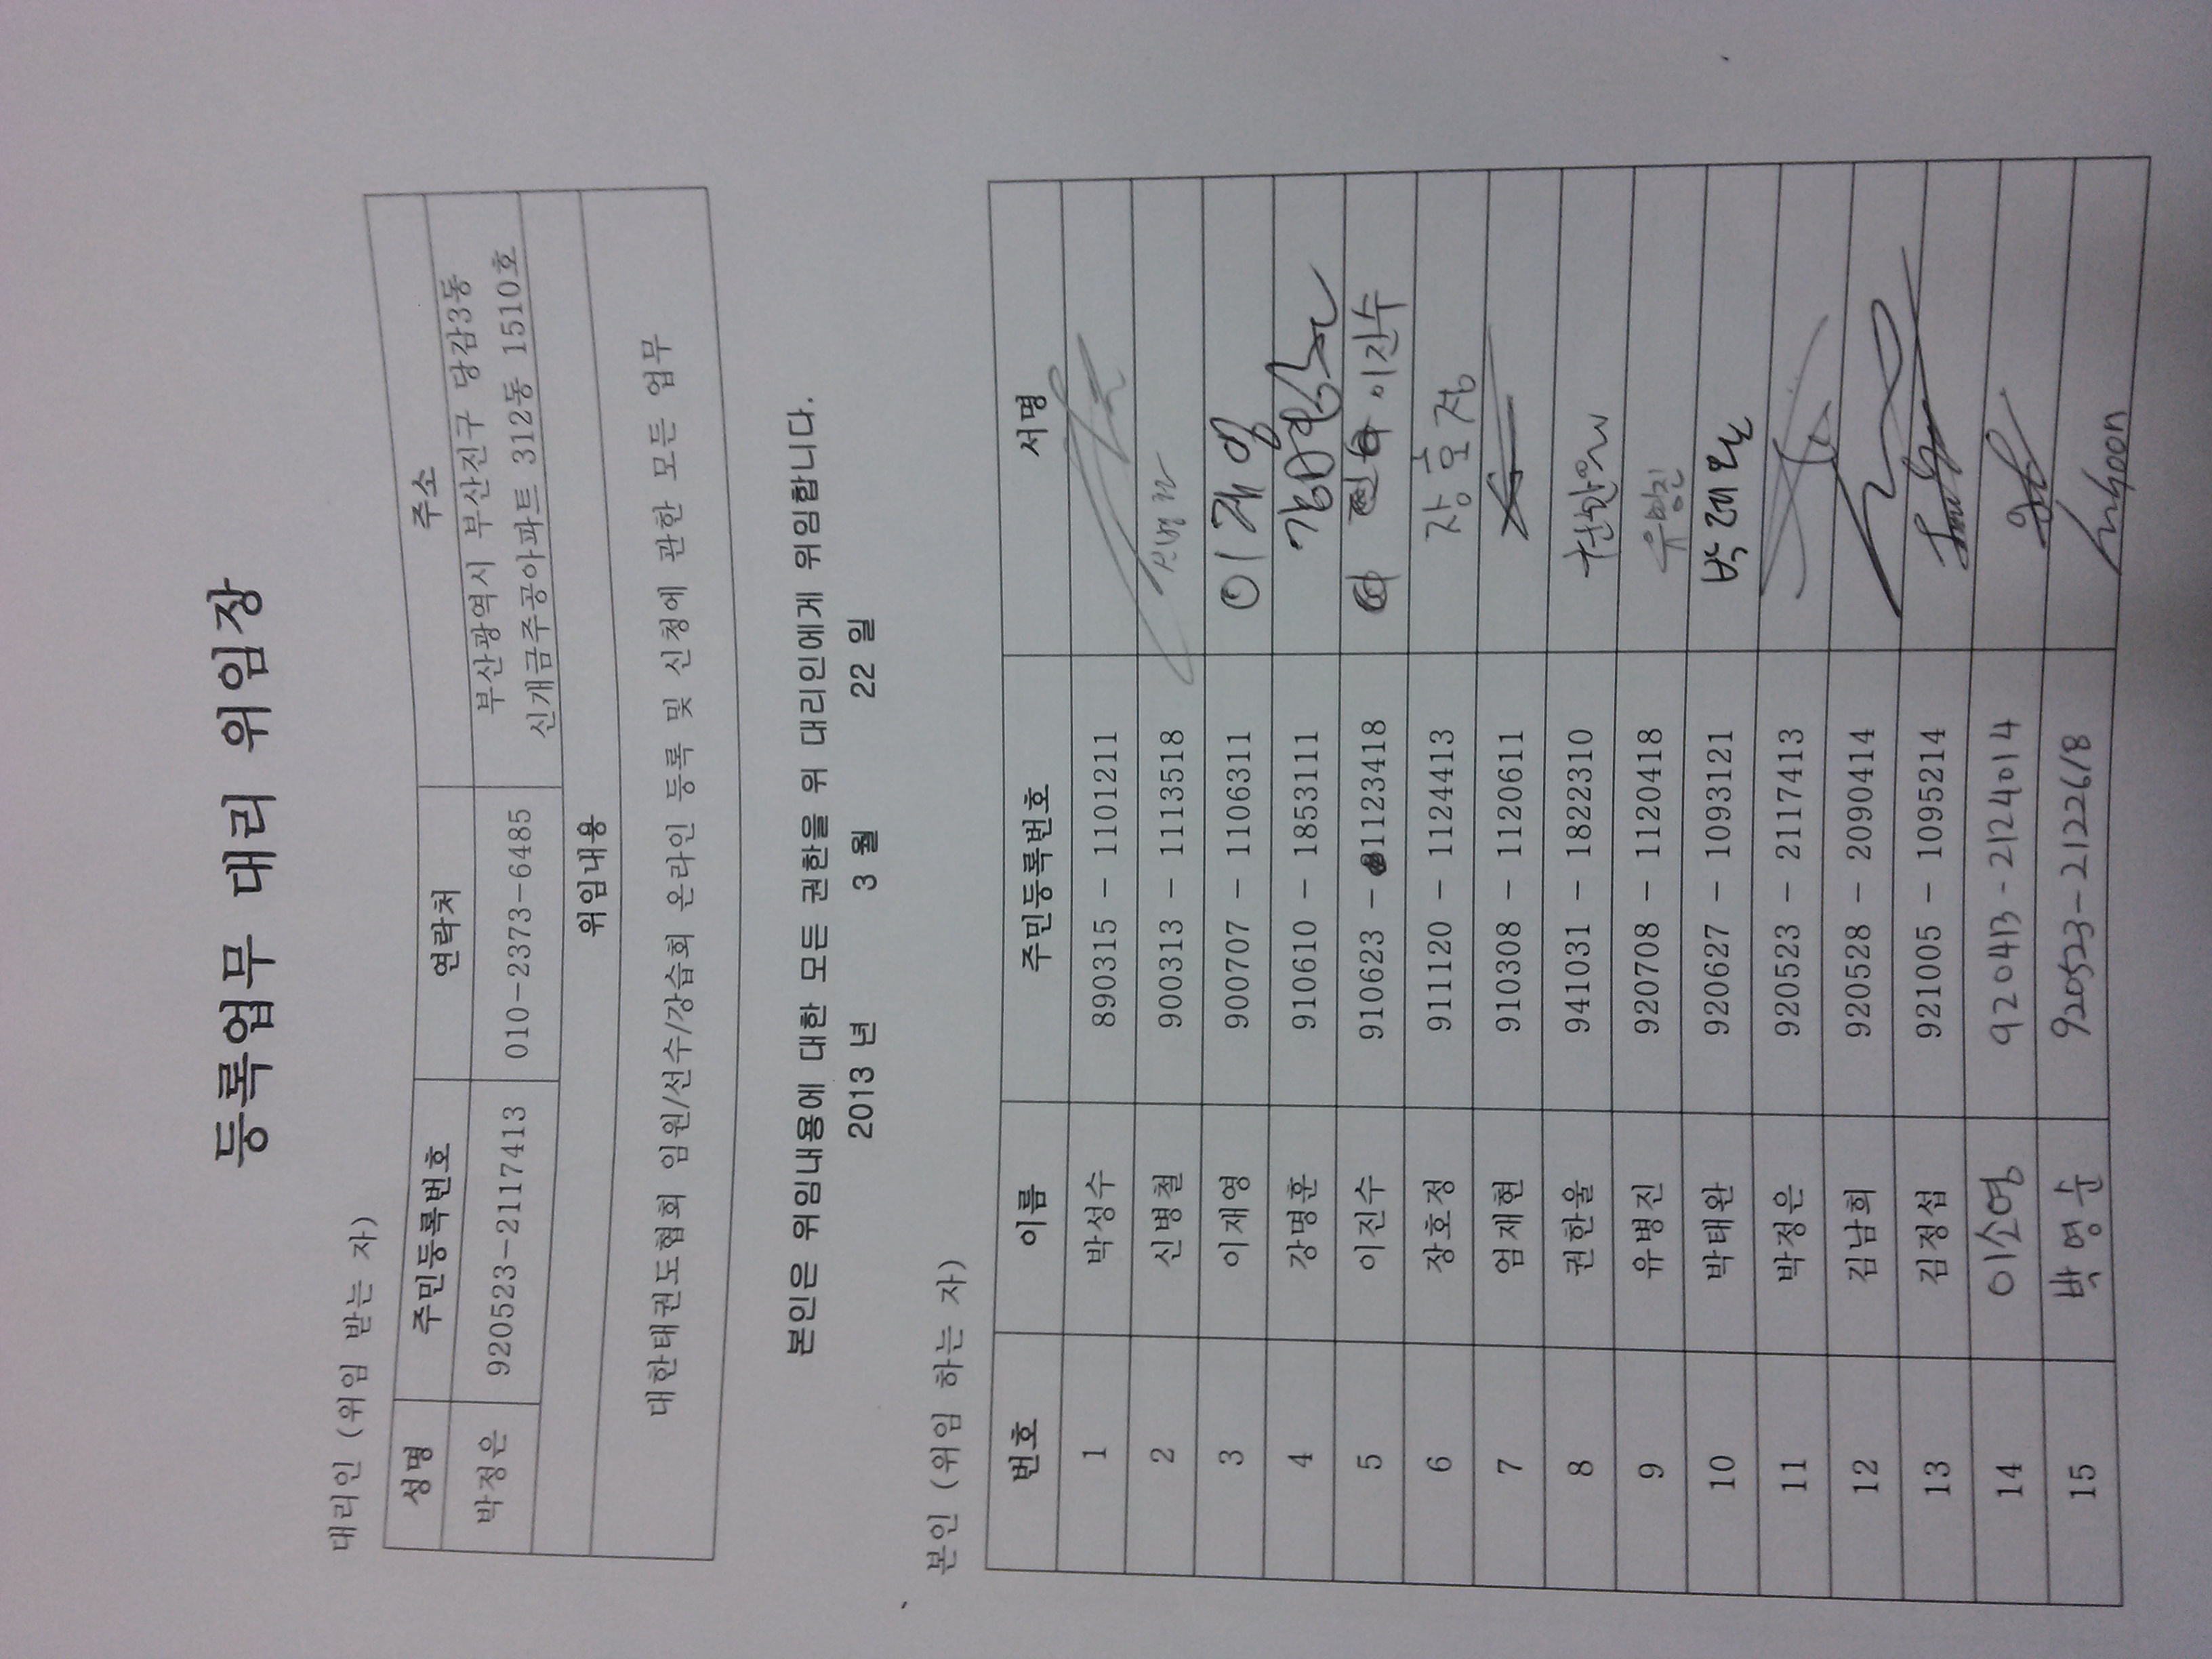 등록업무 대리 위임장
대리인 (위임 받는 자)
성명 주민등록번호 연락처 주소
박정은 920523-2117413 010-2373-6485 부산광역시 부산진구 당감3동
신개금주공아파트 312동 1510호
위임내용
대한태권도협회 임원/선수/강습회 온라인 등록 및 신청에 관한 모든 업무
본인은 위임내용에 대한 모든 권한을 위 대리인에게 위임합니다.
2013 년 3 월 22 일
본인 (위임 하는 자)
번호 이름 주민등록번호 서명
1 박성수 890315 - 1101211
2 신병철 900313 - 1113518
3 이재영 900707 - 1106311 이재영
4 강명훈 910610 - 1853111
5 이진수 910623 - 1123418 이진수
6 장호정 911120 - 1124413 장호정
7 엄재현 910308 - 1120611
8 권한울 941031 - 1822310
9 유병진 920708 - 1120418 유병진
10 박태완 920627 - 1093121
11 박정은 920523 - 2117413
12 김남희 920528 - 2090414
13 김정섭 921005 - 1095214
14 이소영 920413 - 2124014
15 박영순 920523 - 2122618